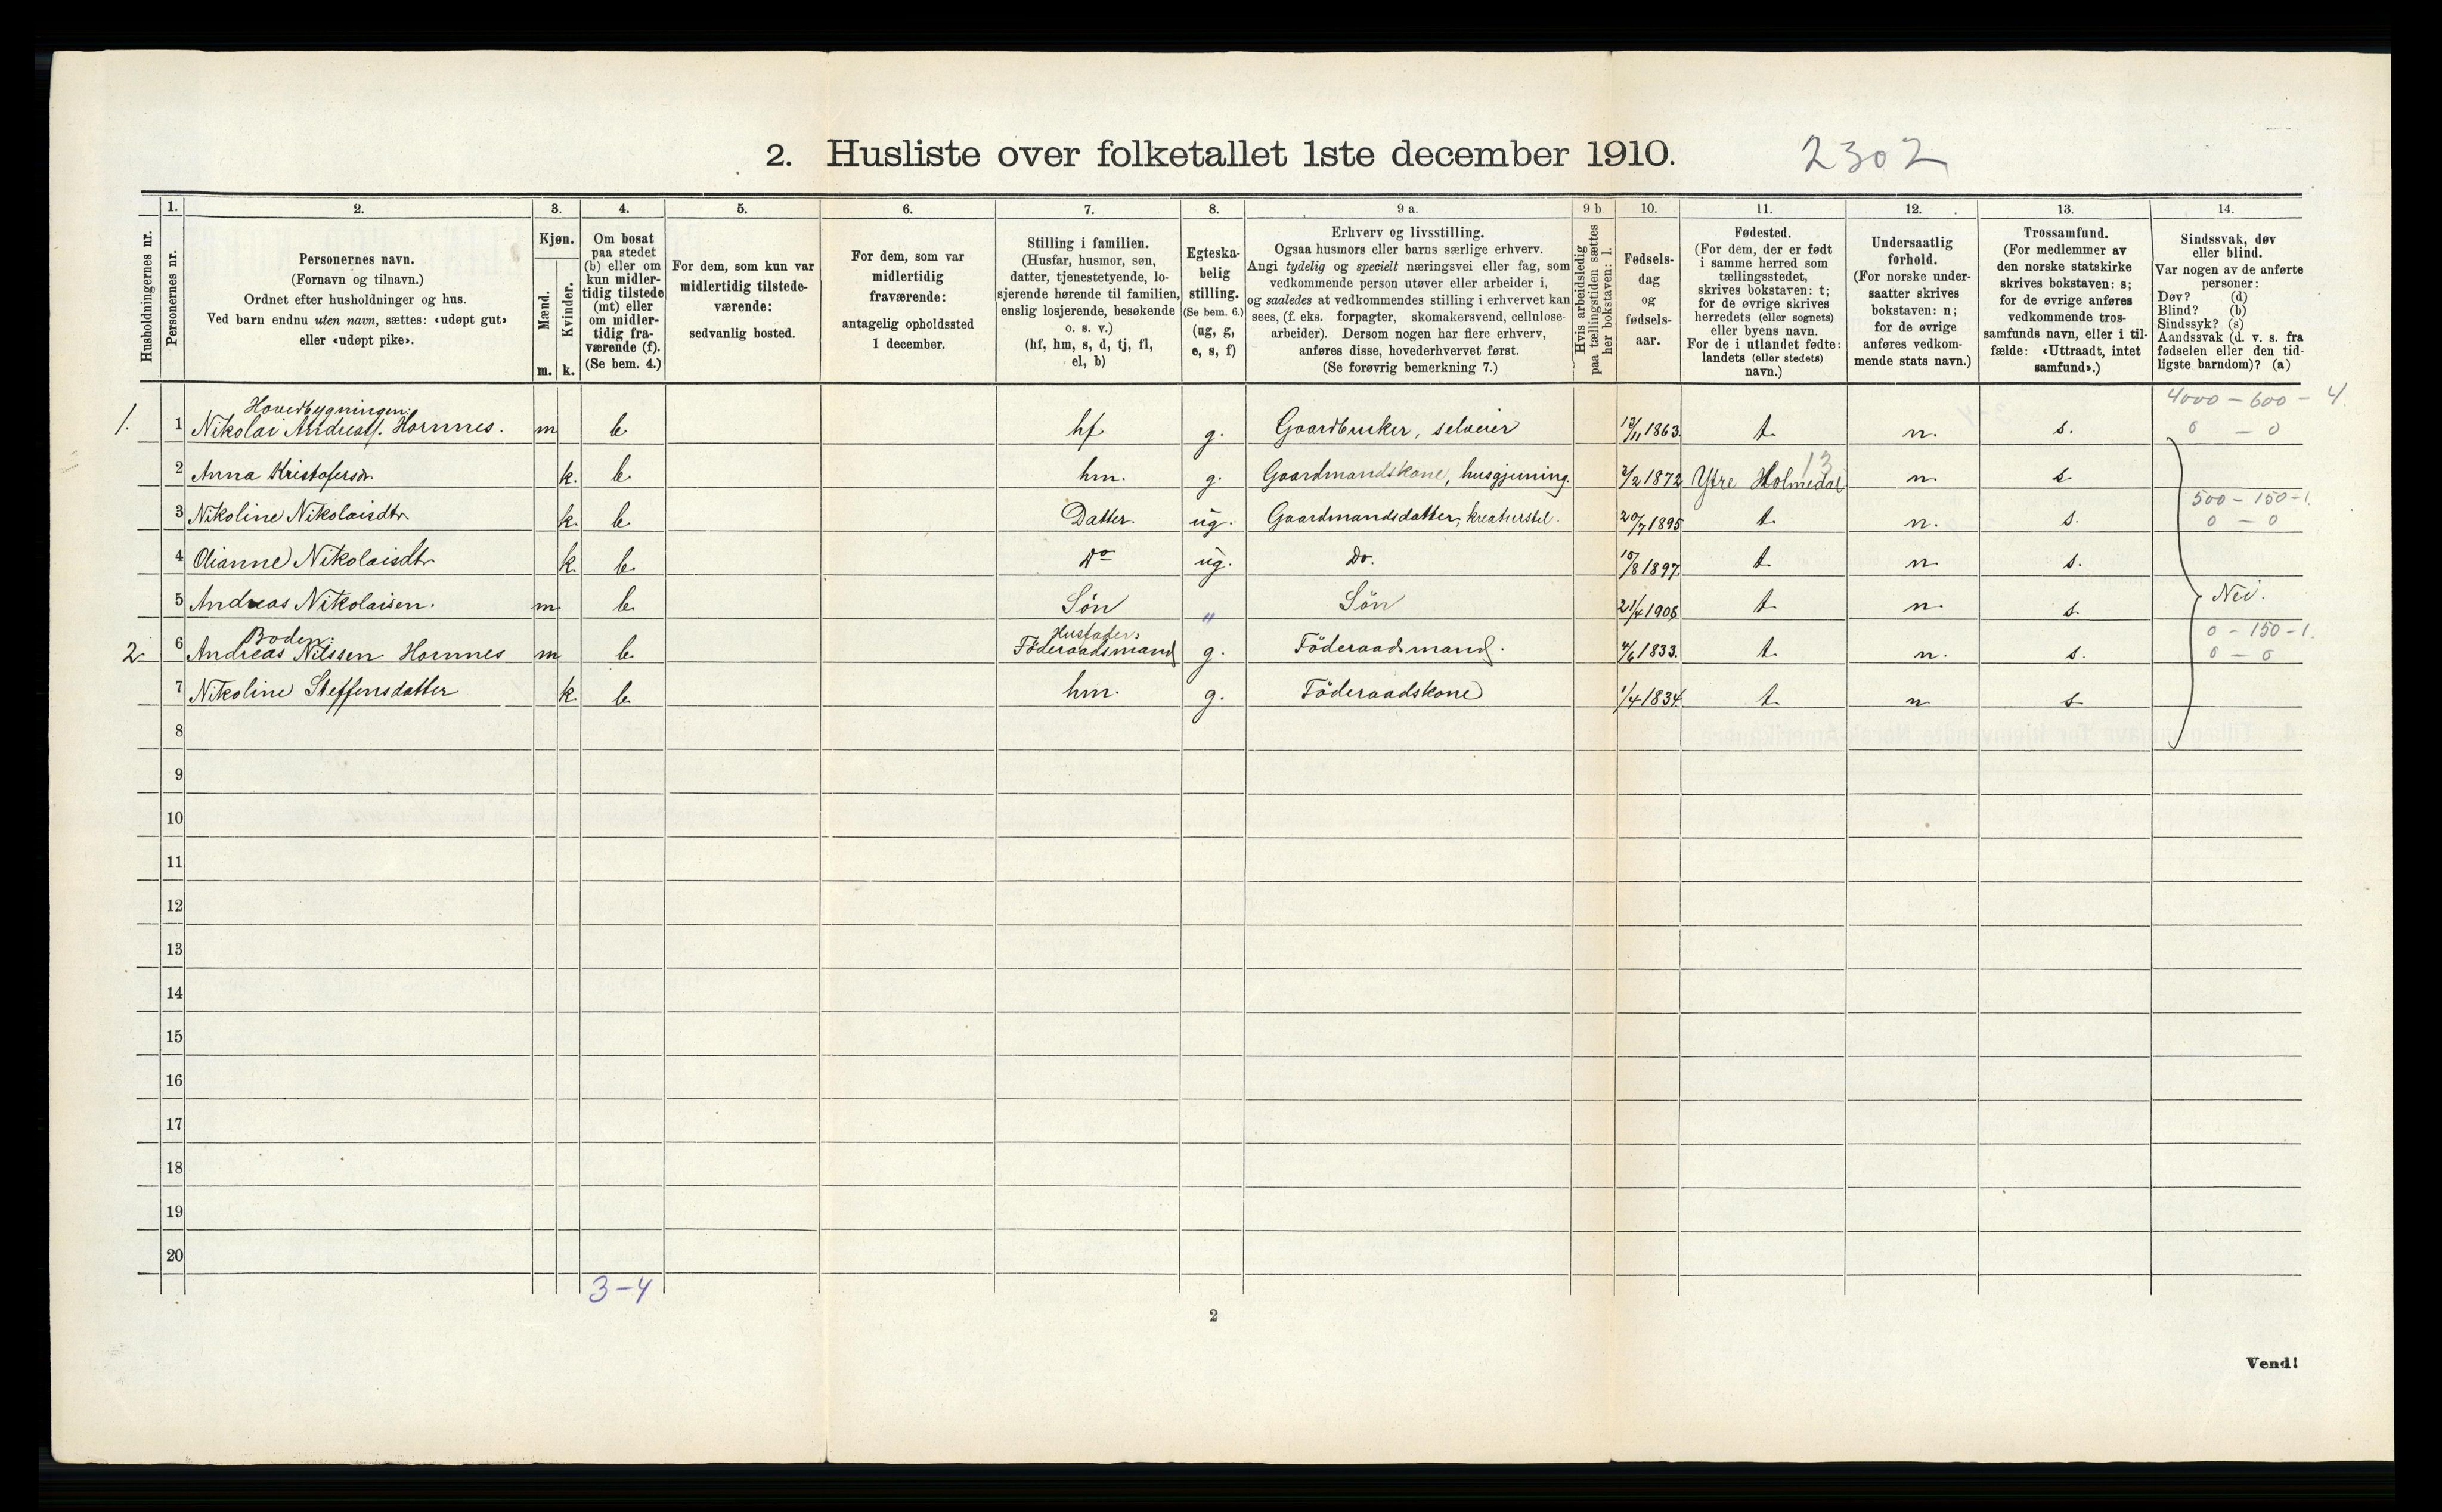 2. Husliste over folketallet 1ste december 1910. 2302
1. 2. 3. 4. 5. 6. 7. 8. 9 a. 9 b 10. 11. 12. 13. 14.
Husholdningernes nr.
Personernes nr.
Personernes navn.
(Fornavn og tilnavn.)
Ordnet efter husholdninger og hus.
Ved barn endnu uten navn, sættes: «udøpt gut»
eller «udøpt pike».
Kjøn.
Mænd.
Kvinder.
m. k.
Om bosat
paa stedet
(b) eller om
kun midler-
tidig tilstede
(mt) eller
om midler-
tidig fra-
værende (f).
(Se bem. 4.)
For dem, som kun var
midlertidig tilstede-
værende:
sedvanlig bosted.
For dem, som var
midlertidig
fraværende:
antagelig opholdssted
1 december.
Stilling i familien.
(Husfar, husmor, søn,
datter, tjenestetyende, lo-
sjerende hørende til familien,
enslig losjerende, besøkende
o. s. v.)
(hf, hm, s, d, tj, fl,
el, b)
Egteska-
belig
stilling.
(Se bem. 6.)
(ug, g,
e, s, f)
Erhverv og livsstilling.
Ogsaa husmors eller barns særlige erhverv.
Angi tydelig og specielt næringsvei eller fag, som
vedkommende person utøver eller arbeider i,
og saaledes at vedkommendes stilling i erhvervet kan
sees, (f. eks. forpagter, skomakersvend, cellulose-
arbeider). Dersom nogen har flere erhverv,
anføres disse, hovederhvervet først.
(Se forøvrig bemerkning 7.)
Hvis arbeidsledig
paa tællingstiden sættes
her bokstaven: l.
Fødsels-
dag
og
fødsels-
aar.
Fødested.
(For dem, der er født
i samme herred som
tællingsstedet,
skrives bokstaven: t;
for de øvrige skrives
herredets (eller sognets)
eller byens navn.
For de i utlandet fødte:
landets (eller stedets)
navn.)
Undersaatlig
forhold.
(For norske under-
saatter skrives
bokstaven: n;
for de øvrige
anføres vedkom-
mende stats navn.)
Trossamfund.
(For medlemmer av
den norske statskirke
skrives bokstaven: s;
for de øvrige anføres
vedkommende tros-
samfunds navn, eller i til-
fælde: «Uttraadt, intet
samfund».)
Sindssvak, døv
eller blind.
Var nogen av de anførte
personer:
Døv? (d)
Blind? (b)
Sindssyk? (s)
Aandssvak (d. v. s. fra
fødselen eller den tid-
ligste barndom)? (a)
Hovedbygningen: 4000 - 600 - 4.
1. 1 Nikolai Andreasf. Hornnes. m b hf g. Gaardbruker, selveier 13/11 1863. t n. s. 0 - 0
13
2 Anna Kristofersdr k. b. hm. g. Gaardmandskone, husgjerning. 2/2 1872 Ytre Holmedal n. s.
500 - 150 - 1.
3 Nikoline Nikolaisdtr k. b Datter. ug. Gaardmandsdatter, kreaturstel. 20/7 1895 t. n. s. 0 - 0
4 Olianne Nikolaisdtr k. b. Do ug. Do. 15/8 1897. t. n. s.
5 Andreas Nikolaisen. m b. Sön " Sön 21/4 1906 t. n. s. Nei.
Boden: Husfader, 0 - 150 - 1.
2. 6 Andreas Nilssen Hornnes m b. Föderaadsmand g. Föderaadsmand. 4/6 1833. t. n. s. 0 - 0
7 Nikoline Steffensdatter k. b. hm. g. Föderaadskone 1/4 1834 t. n s.
8
9
10
11
12
13
14
15
16
17
18
19
20
3-4
2
Vend!